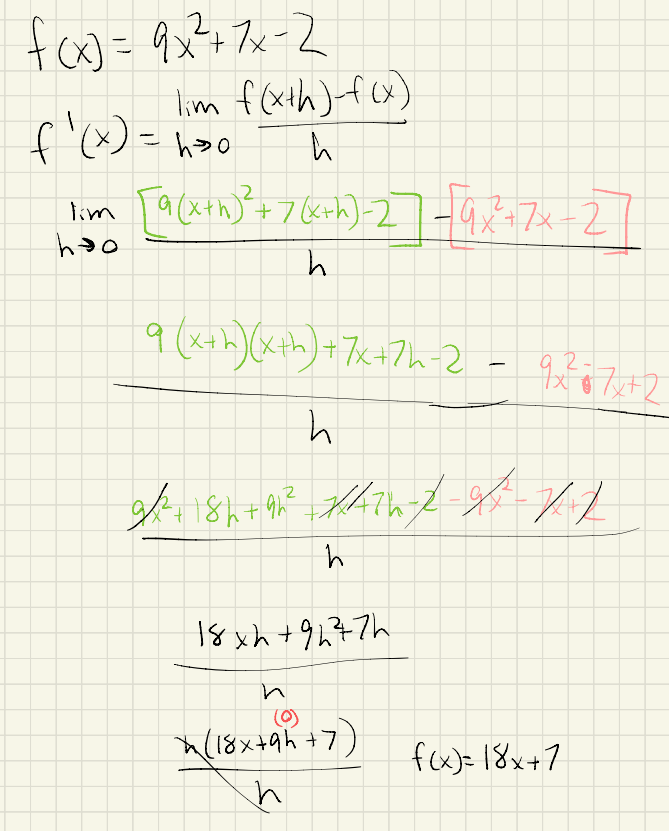 f(x) = 9x²+7x-2
f'(x) = lim h→0 f(x+h)-f(x) / h
lim h→0 [9(x+h)²+7(x+h)-2] - [9x²+7x-2] / h
9(x+h)(x+h)+7x+7h-2 - 9x²-7x+2 / h
9x²+18h+9h²+7x+7h-2-9x²-7x+2 / h
18xh+9h²+7h / h
(0)
h(18x+9h+7) / h f(x)=18x+7